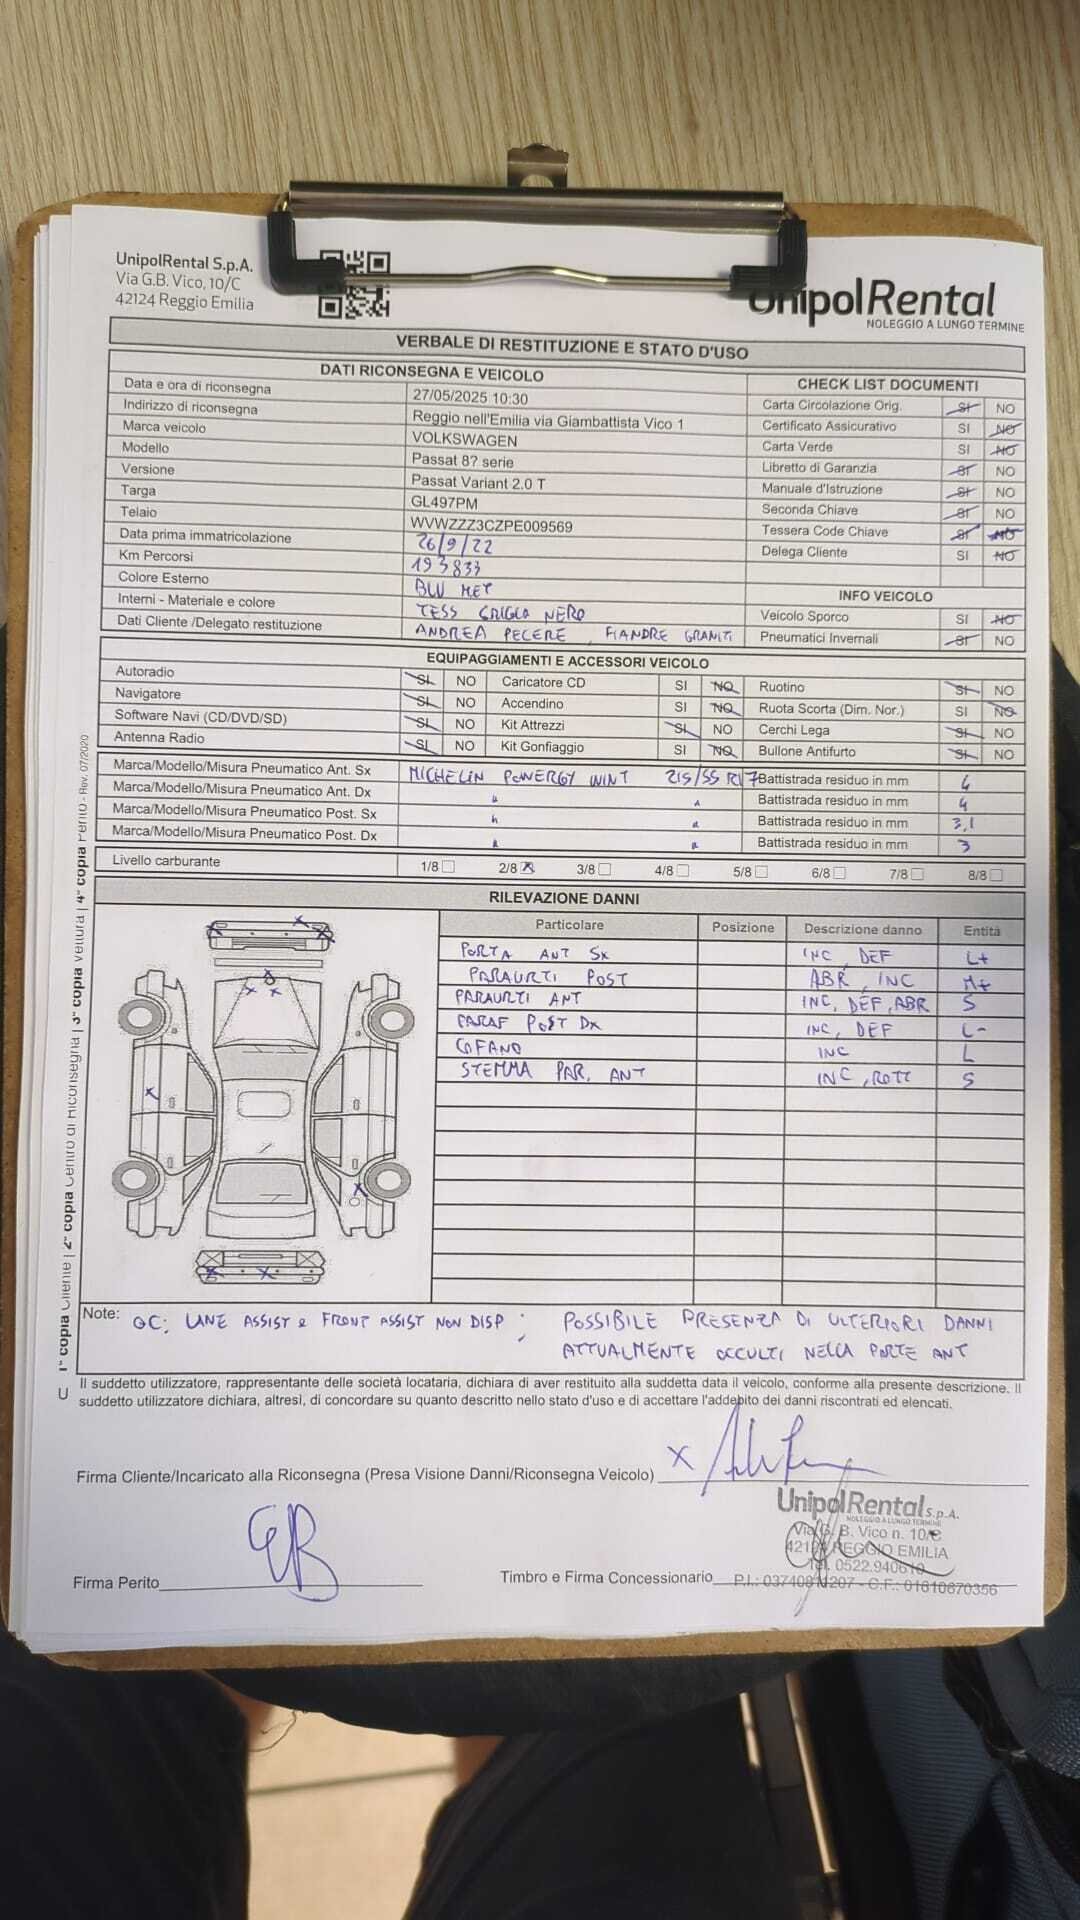 UnipolRental S.p.A.
Via G.B. Vico, 10/C
42124 Reggio Emilia
UnipolRental
NOLEGGIO A LUNGO TERMINE
VERBALE DI RESTITUZIONE E STATO D'USO
DATI RICONSEGNA E VEICOLO
Data e ora di riconsegna 27/05/2025 10:30
Indirizzo di riconsegna Reggio nell'Emilia via Giambattista Vico 1
Marca veicolo VOLKSWAGEN
Modello Passat 8? serie
Versione Passat Variant 2.0 T
Targa GL497PM
Telaio WVWZZZ3CZPE009569
Data prima immatricolazione 26/9/22
Km Percorsi 193833
Colore Esterno BLU MET
Interni - Materiale e colore TESS GRIGIO NERO
Dati Cliente /Delegato restituzione ANDREA PECERE, FIANDRE GRANITI
CHECK LIST DOCUMENTI
Carta Circolazione Orig. SI NO
Certificato Assicurativo SI NO
Carta Verde SI NO
Libretto di Garanzia SI NO
Manuale d'Istruzione SI NO
Seconda Chiave SI NO
Tessera Code Chiave SI NO
Delega Cliente SI NO
INFO VEICOLO
Veicolo Sporco SI NO
Pneumatici Invernali SI NO
EQUIPAGGIAMENTI E ACCESSORI VEICOLO
Autoradio SI NO Caricatore CD SI NO Ruotino SI NO
Navigatore SI NO Accendino SI NO Ruota Scorta (Dim. Nor.) SI NO
Software Navi (CD/DVD/SD) SI NO Kit Attrezzi SI NO Cerchi Lega SI NO
Antenna Radio SI NO Kit Gonfiaggio SI NO Bullone Antifurto SI NO
Marca/Modello/Misura Pneumatico Ant. Sx MICHELIN POWERGY WINT 215/55 R17 Battistrada residuo in mm 4
Marca/Modello/Misura Pneumatico Ant. Dx " " Battistrada residuo in mm 4
Marca/Modello/Misura Pneumatico Post. Sx " " Battistrada residuo in mm 3,1
Marca/Modello/Misura Pneumatico Post. Dx " " Battistrada residuo in mm 3
Livello carburante 1/8 2/8 X 3/8 4/8 5/8 6/8 7/8 8/8
RILEVAZIONE DANNI
Particolare Posizione Descrizione danno Entità
PORTA ANT SX INC, DEF L+
PARAURTI POST ABR, INC M+
PARAURTI ANT INC, DEF, ABR S
PARAF POST DX INC, DEF L-
COFANO INC L
STEMMA PAR. ANT INC, ROTT S
Note: QC: LANE ASSIST e FRONT ASSIST NON DISP; POSSIBILE PRESENZA DI ULTERIORI DANNI
ATTUALMENTE OCCULTI NELLA PORTE ANT
Il suddetto utilizzatore, rappresentante delle società locataria, dichiara di aver restituito alla suddetta data il veicolo, conforme alla presente descrizione. Il
suddetto utilizzatore dichiara, altresì, di concordare su quanto descritto nello stato d'uso e di accettare l'addebito dei danni riscontrati ed elencati.
Firma Cliente/Incaricato alla Riconsegna (Presa Visione Danni/Riconsegna Veicolo) X
Firma Perito
Timbro e Firma Concessionario
UnipolRental S.p.A.
NOLEGGIO A LUNGO TERMINE
Via G. B. Vico n. 10/C
42124 REGGIO EMILIA
Tel. 0522.940610
P.I.: 03740811207 - C.F.: 01610670356
1° copia Cliente | 2° copia Centro di Riconsegna | 3° copia Vettura | 4° copia Perito - Rev. 07/2020